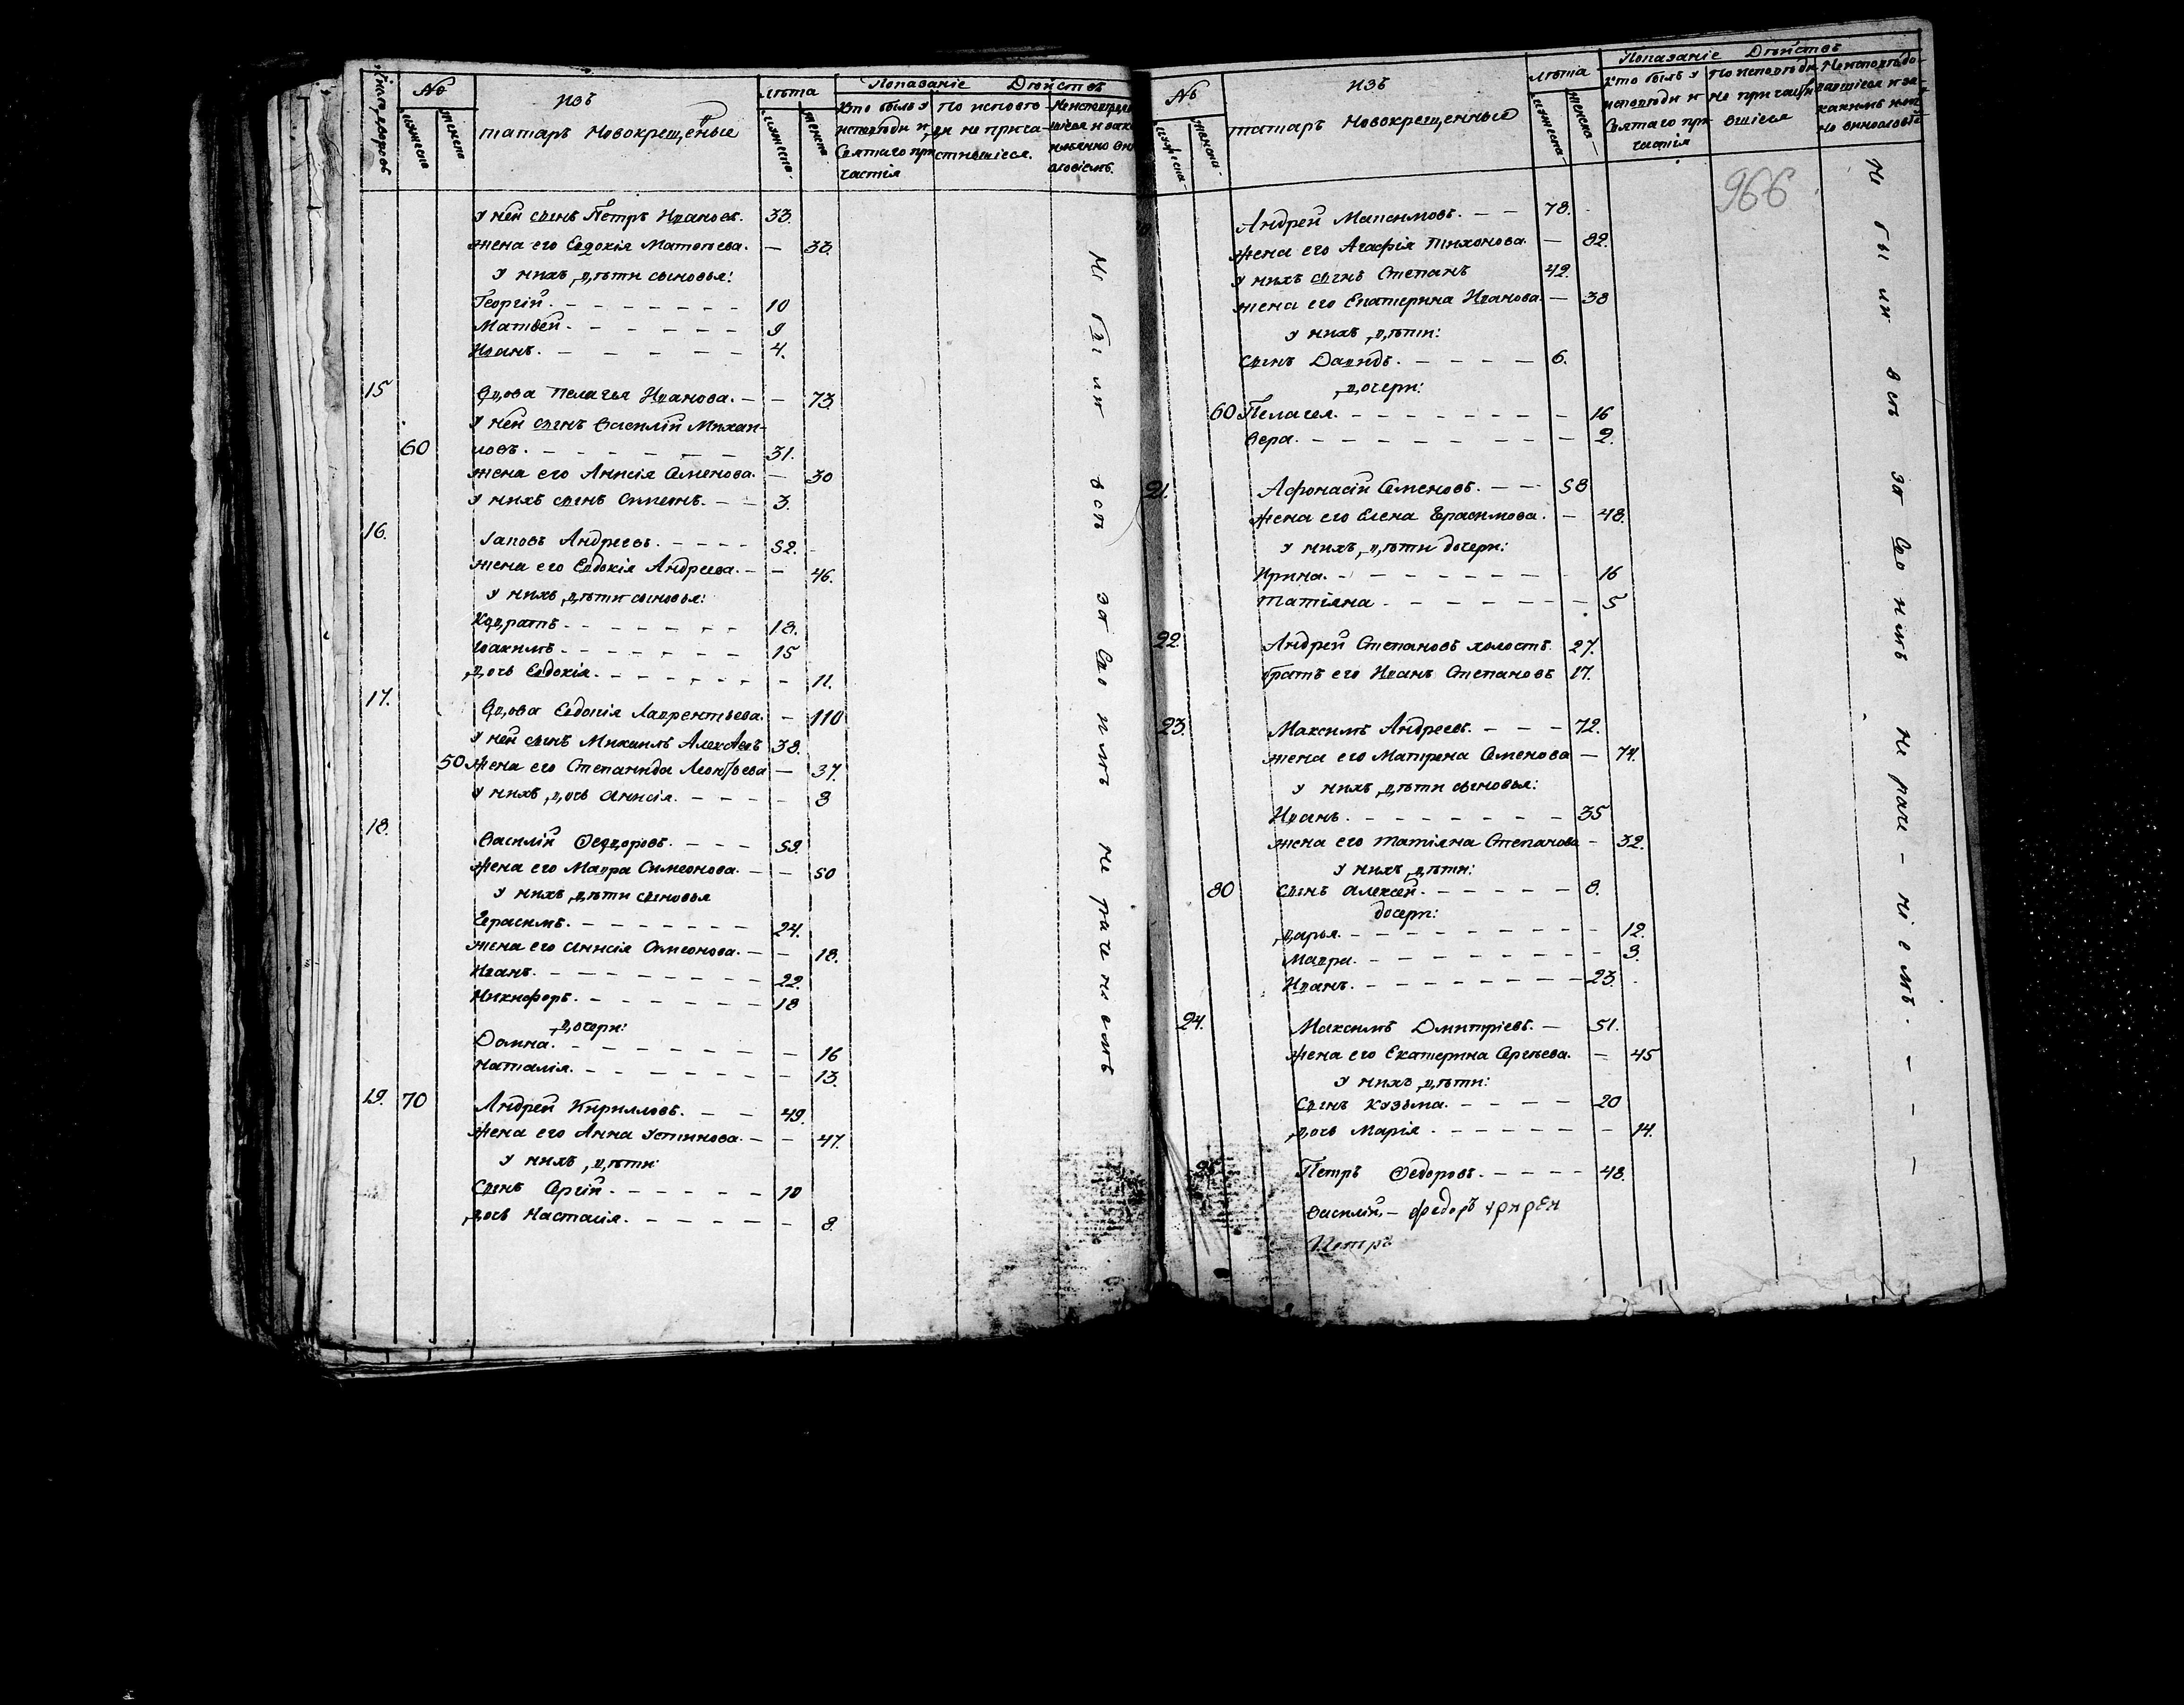 Число дворовъ
№
мужеска
женска
Изъ
татаръ новокрещеные
лѣта
мужеска
женска
Показаніе Дѣйствъ
Кто былъ у исповѣди и Святаго причастія
По исповѣди не причастившіеся.
У ней сынъ Петръ Ивановъ. 33.
жена его Евдокія Матвѣева. — 33.
у нихъ дѣти сыновья:
Георгій. 10
Матвей. 9
Иванъ. 4.
15 Вдова Пелагея Иванова. — 73.
У ней сынъ Василій Михаи-
60 ловъ. 31.
жена его Анисія Семенова. — 30
У нихъ сынъ Симеонъ. 3.
16. Іаковъ Андреевъ. 52.
жена его Евдокія Андреева. — 46.
у нихъ дѣти сыновья:
Кодратъ. 18.
Іоакимъ. 15
дочь Евдокія. — 11.
17. Вдова Евдокія Лаврентьева. — 110
У ней сынъ Михаилъ Алексѣевъ 38.
50 жена его Степанида Леонтьева — 37.
У нихъ дочь Анисія. — 3
18. Василій Феодоровъ. 59.
жена его Мавра Симеонова. — 50
у нихъ дѣти сыновья
Герасимъ. 24.
жена его Анисія Симеонова. — 18.
Иванъ. 22.
Никифоръ. 18
дочери:
Домна. — 16
Наталія. — 13.
19. 70 Андрей Кирилловъ. 49.
жена его Анна Устинова. — 47.
у нихъ дѣти:
Сынъ Сергій. 10
дочь Настасія. — 8.
Не были всѣ за Своимъ нераченіемъ
№
мужеска
женска
Изъ
татаръ новокрещенные
лѣта
мужеска
женска
Показаніе Дѣйствъ
Кто былъ у исповѣди и Святаго причастія
По исповѣди не причастившіеся
966
Андрей Максимовъ. 78.
жена его Агафія Тихонова. — 82.
у нихъ сынъ Степанъ 42.
жена его Екатерина Иванова. — 38
у нихъ дѣти:
Сынъ Давидъ. 6.
дочери:
60 Пелагея. — 16
Вера. — 2.
21. Афонасій Семеновъ. 58
жена его Елена Ерасимова. — 48.
у нихъ дѣти дочери:
Ирина. 16
Татіяна. — 5
22. Андрей Степановъ холостъ. 27.
братъ его Иванъ Степановъ 17.
23. Максимъ Андреевъ. 72.
жена его Матрена Семенова — 74.
у нихъ дѣти сыновья:
Иванъ. 35
жена его Татіяна Степанова — 32.
у нихъ дѣти:
80 Сынъ Алексей. 8.
дочери:
Дарья. — 12.
Мавра. — 3.
Иванъ. 23.
24. Максимъ Дмитріевъ. 51.
жена его Екатерина Сергѣева. — 45
у нихъ дѣти:
Сынъ Козьма. 20
дочь Марія. — 14.
25 Петръ Федоровъ. 48.
Василій, — федоръ
Петръ
Не были всѣ за Своимъ нераче-ніемъ. — — —